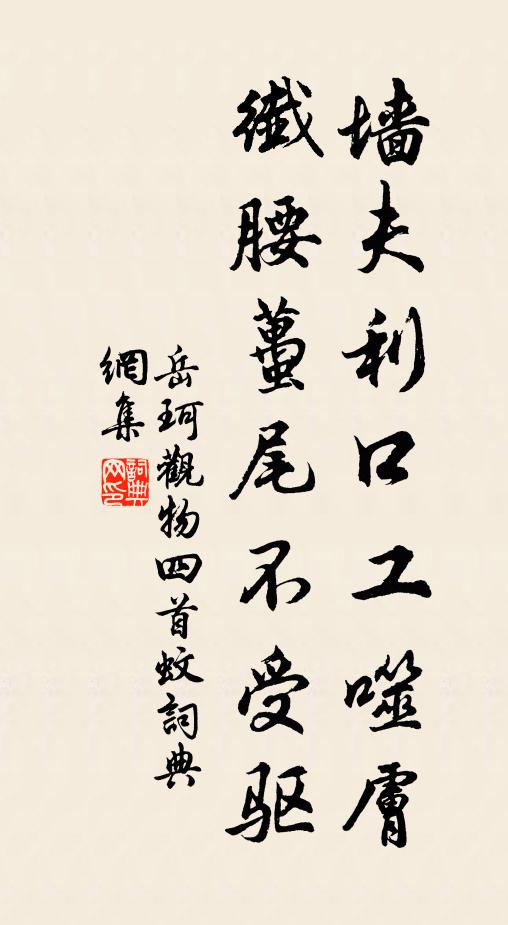 墙夫利口工噬膚
纖腰蠆尾不受驱
岳珂觀物四首蚊詞典
網集
詞典
网印